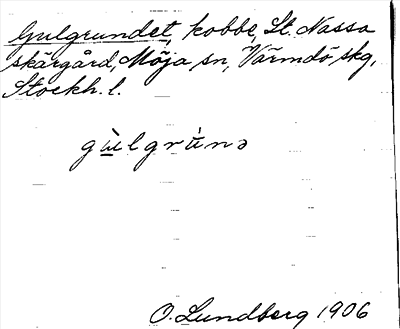 Gulgrundet, kobbe, St. Nassa
skärgård, Möja sn, Värmdö skg,
Stockh. l.
gu̇̀lgrùnə
O. Lundberg 1906